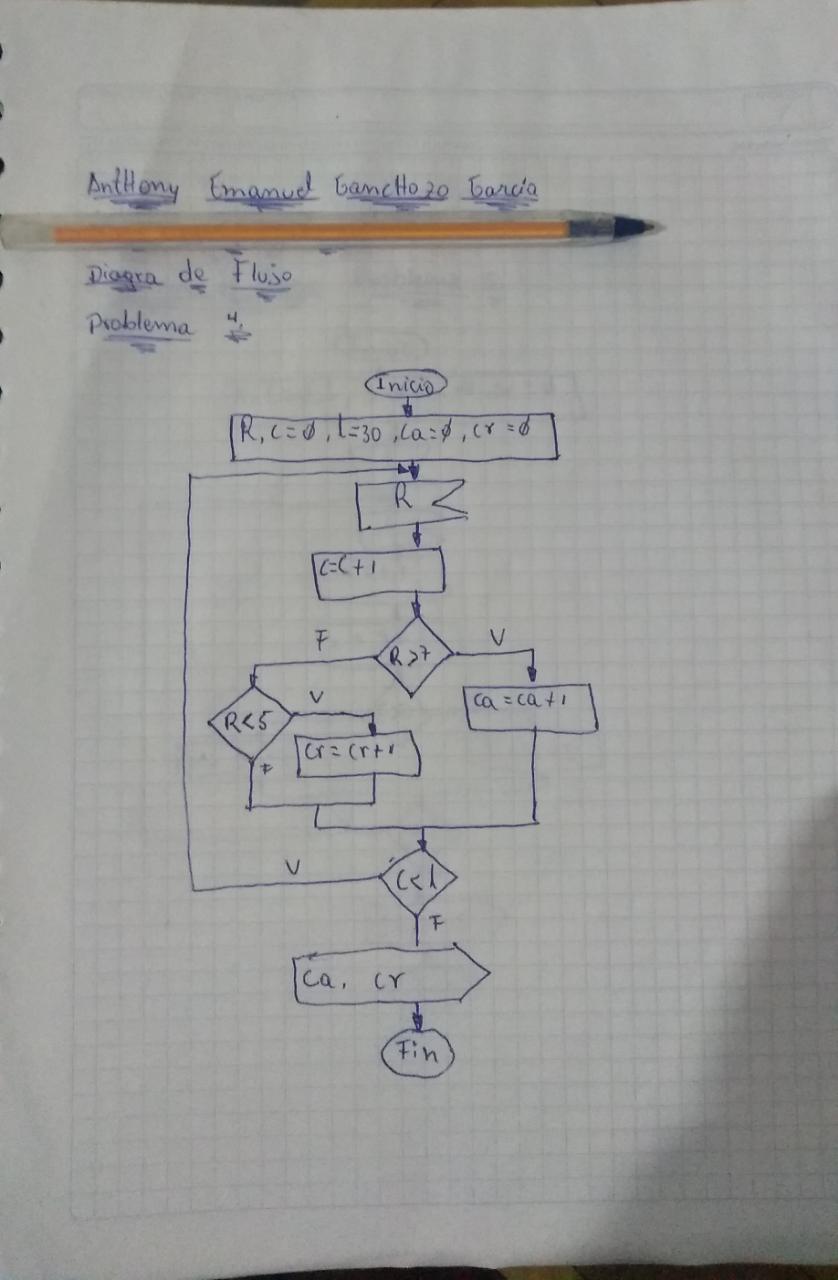 AntHony Emanuel GancHozo García
Diagra de Flujo
Problema 4.
Inicio
R, C=ø, l=30, Ca=ø, Cr=ø
R
C=C+1
R>7
F
V
R<5
V
F
Cr=Cr+1
Ca=Ca+1
C<l
V
F
Ca, Cr
Fin